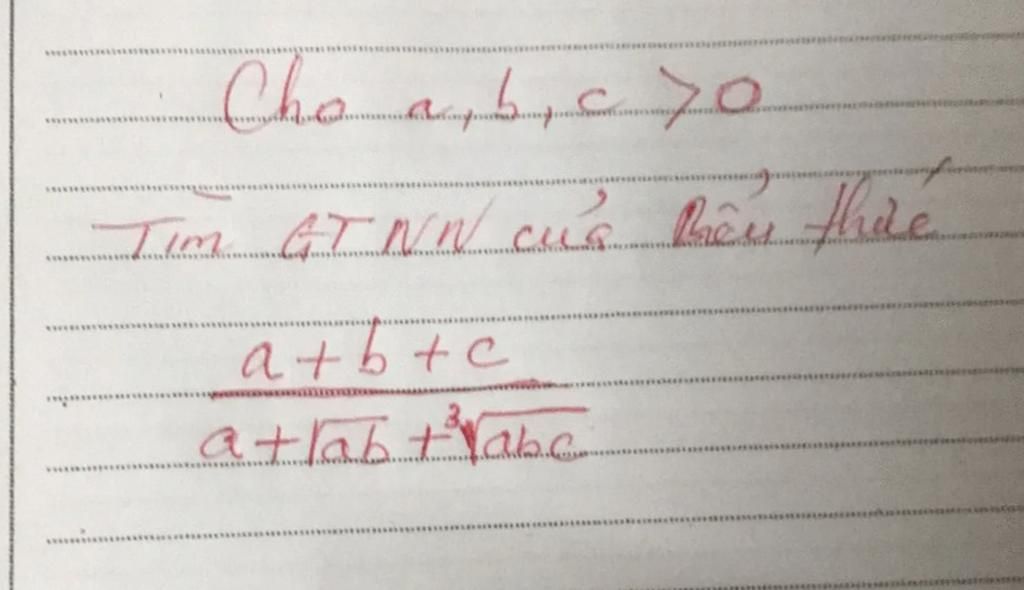 Cho a, b, c > 0
Tìm GTNN của biểu thức
a + b + c
a + √ab + ³√abc